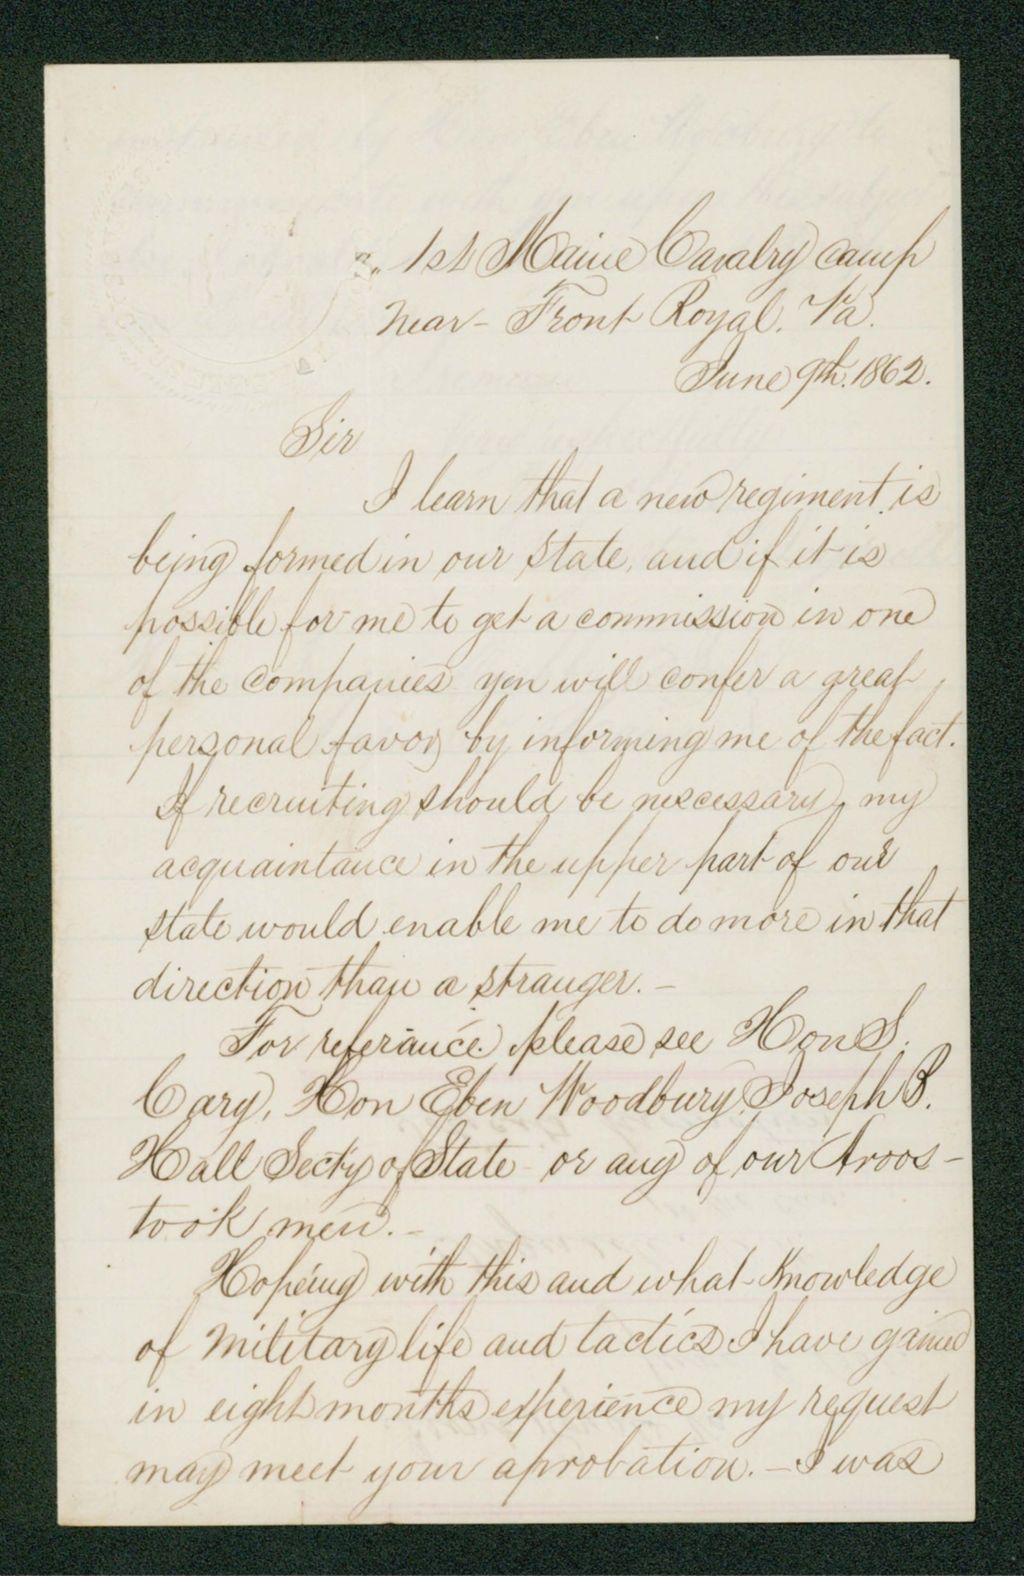 1st Maine Cavalry camp
near - Front Royal. Va.
June 9th. 1862.
Sir
I learn that a new regiment is
being formed in our state, and if it is
possible for me to get a commission in one
of the companies you will confer a great
personal favor by informing me of the fact.
If recruiting should be nescessary, my
acquaintance in the upper part of our
state would enable me to do more in that
direction than a stranger. -
For referance please see Hon S.
Cary, Hon Eben Woodbury, Joseph B.
Hall Secty of State or any of our Aroos-
took men. -
Hopeing with this and what Knowledge
of military life and tactics I have gained
in eight months experience my request
may meet your aprobation. - I was